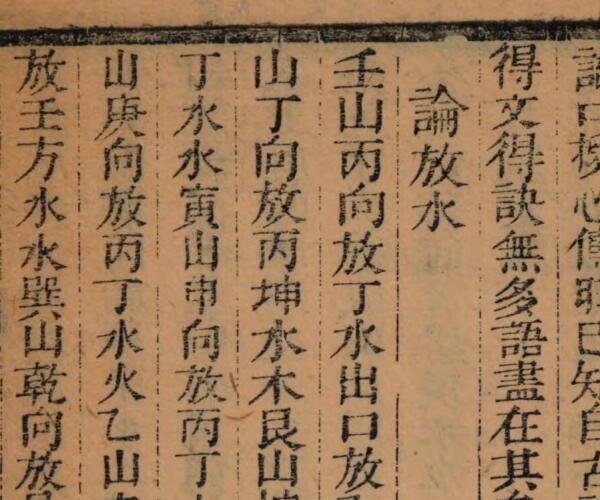 口授心傳耶已知自古
得文得訣無多語盡在其
論放水
壬山丙向放丁水出口放
山丁向放丙坤水木艮山
丁水水寅山申向放丙丁
山庚向放丙丁水火乙山
放壬方水水巽山乾向放